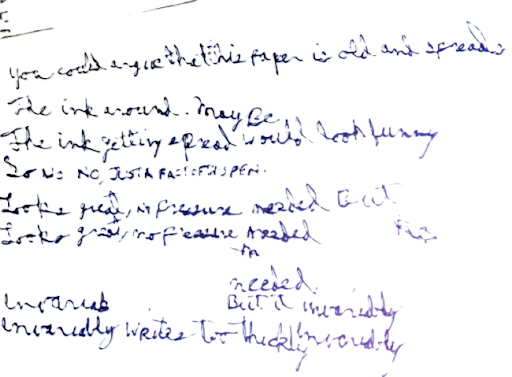 You could argue that this paper is old and spreads
The ink around. Maybe
The ink getting spread would look funny
So is NO, JUST A FACT OF THIS PEN.
Looks great, no pressure needed But
Looks great, no pressure needed
needed.
Invariab But it invariably
Invariably writes too thickly invariably